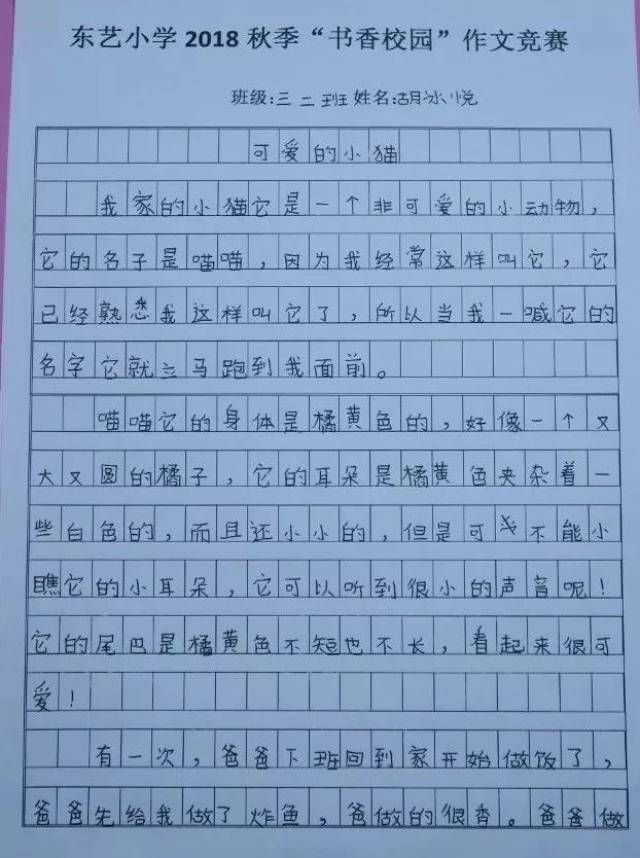 东艺小学2018秋季“书香校园”作文竞赛
班级:三二班姓名:胡冰悦
可爱的小猫
我家的小猫它是一个非可爱的小动物，
它的名子是喵喵，因为我经常这样叫它，它
已经熟悉我这样叫它了，所以当我一喊它的
名字它就立马跑到我面前。
喵喵它的身体是橘黄色的，好像一个又
大又圆的橘子，它的耳朵是橘黄色夹杂着一
些白色的，而且还小小的，但是可不能小
瞧它的小耳朵，它可以听到很小的声音呢！
它的尾巴是橘黄色不短也不长，看起来很可
爱！
有一次，爸爸下班回到家开始做饭了，
爸爸先给我做了炸鱼，爸做的很香。爸爸做